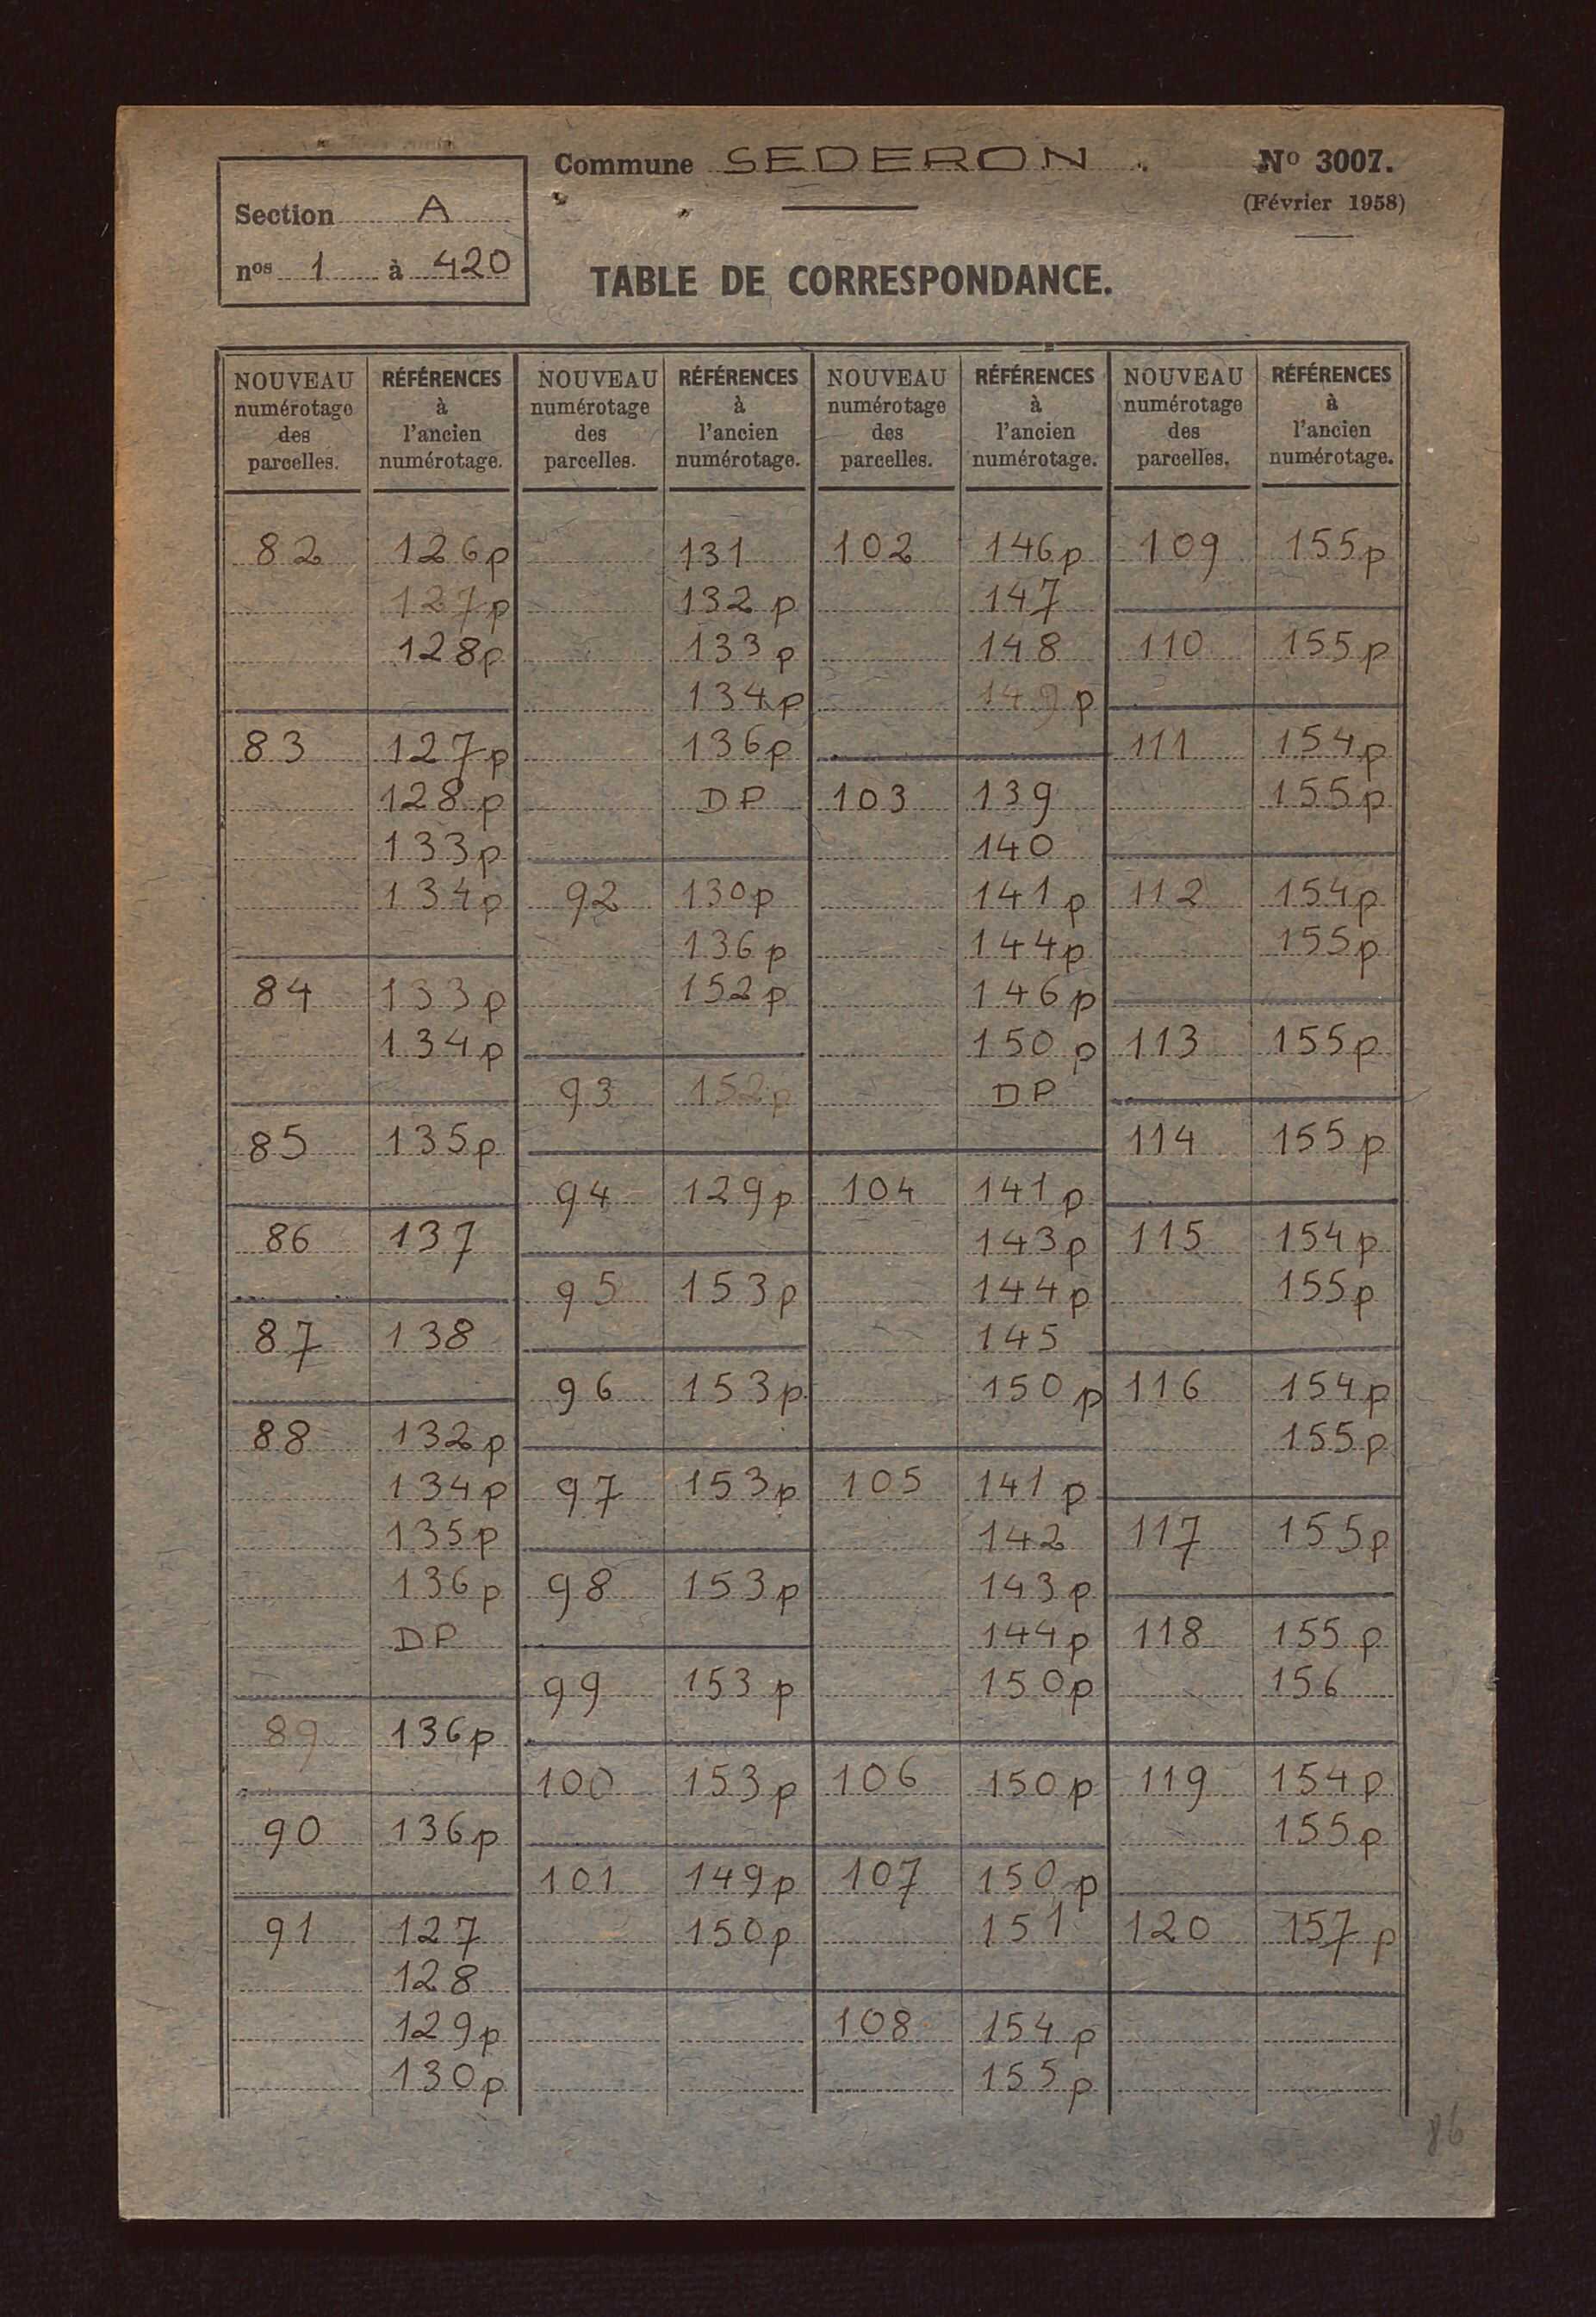 Commune SEDERON.
Nº 3007.
(Février 1958)
Section A
nos 1 à 420
TABLE DE CORRESPONDANCE.
NOUVEAU numérotage des parcelles.
RÉFÉRENCES à l'ancien numérotage.
82 126p
127p
128p
83 127p
128p
133p
134p
84 133p
134p
85 135p
86 137
87 138
88 132p
134p
135p
136p
DP
89 136p
90 136p
91 127
128
129p
130p
NOUVEAU numérotage des parcelles.
RÉFÉRENCES à l'ancien numérotage.
131
132p
133p
134p
136p
DP
92 130p
136p
152p
93 152p
94 129p
95 153p
96 153p
97 153p
98 153p
99 153p
100 153p
101 149p
150p
NOUVEAU numérotage des parcelles.
RÉFÉRENCES à l'ancien numérotage.
102 146p
147
148
149p
103 139
140
141p
144p
146p
150p
DP
104 141p
143p
144p
145
150p
105 141p
142
143p
144p
150p
106 150p
107 150p
151
108 154p
155p
NOUVEAU numérotage des parcelles.
RÉFÉRENCES à l'ancien numérotage.
109 155p
110 155p
111 154p
155p
112 154p
155p
113 155p
114 155p
115 154p
155p
116 154p
155p
117 155p
118 155p
156
119 154p
155p
120 157p
86